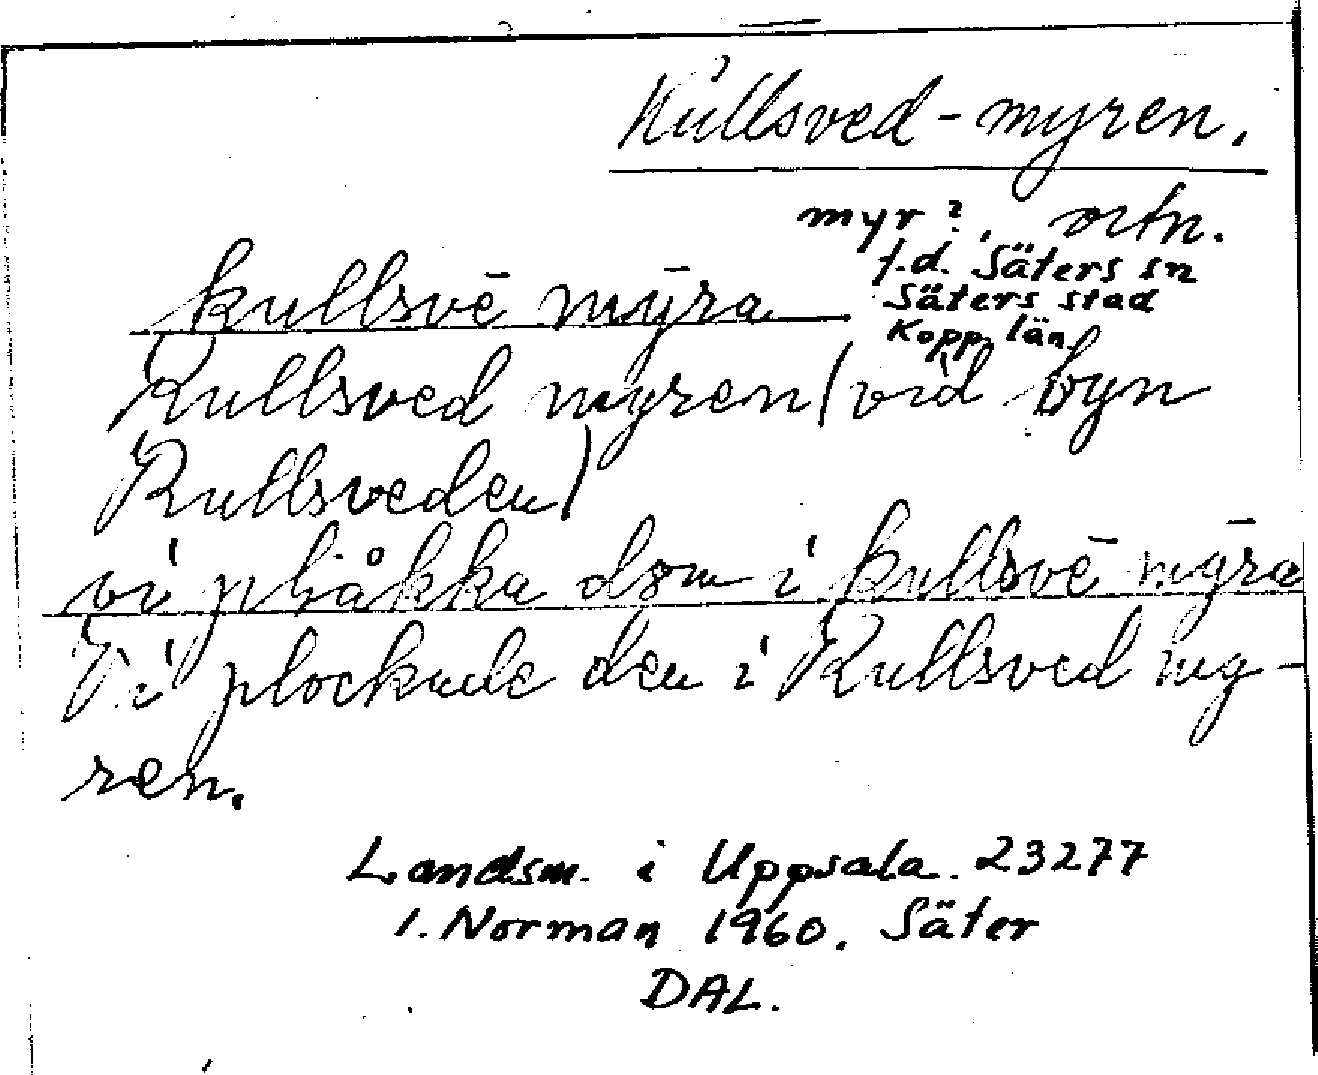 Kullsved-myren.
myr?, ortn.
f.d. Säters sn
Säters stad
Kopp. län
kullsvē mȳra
Kullsved myren (vid byn
Kullsveden)
vi plåkka dom i kullsvē mȳra
Vi plockade den i Kullsved my-
ren.
Landsm. i Uppsala. 23277
I. Norman 1960. Säter
DAL.